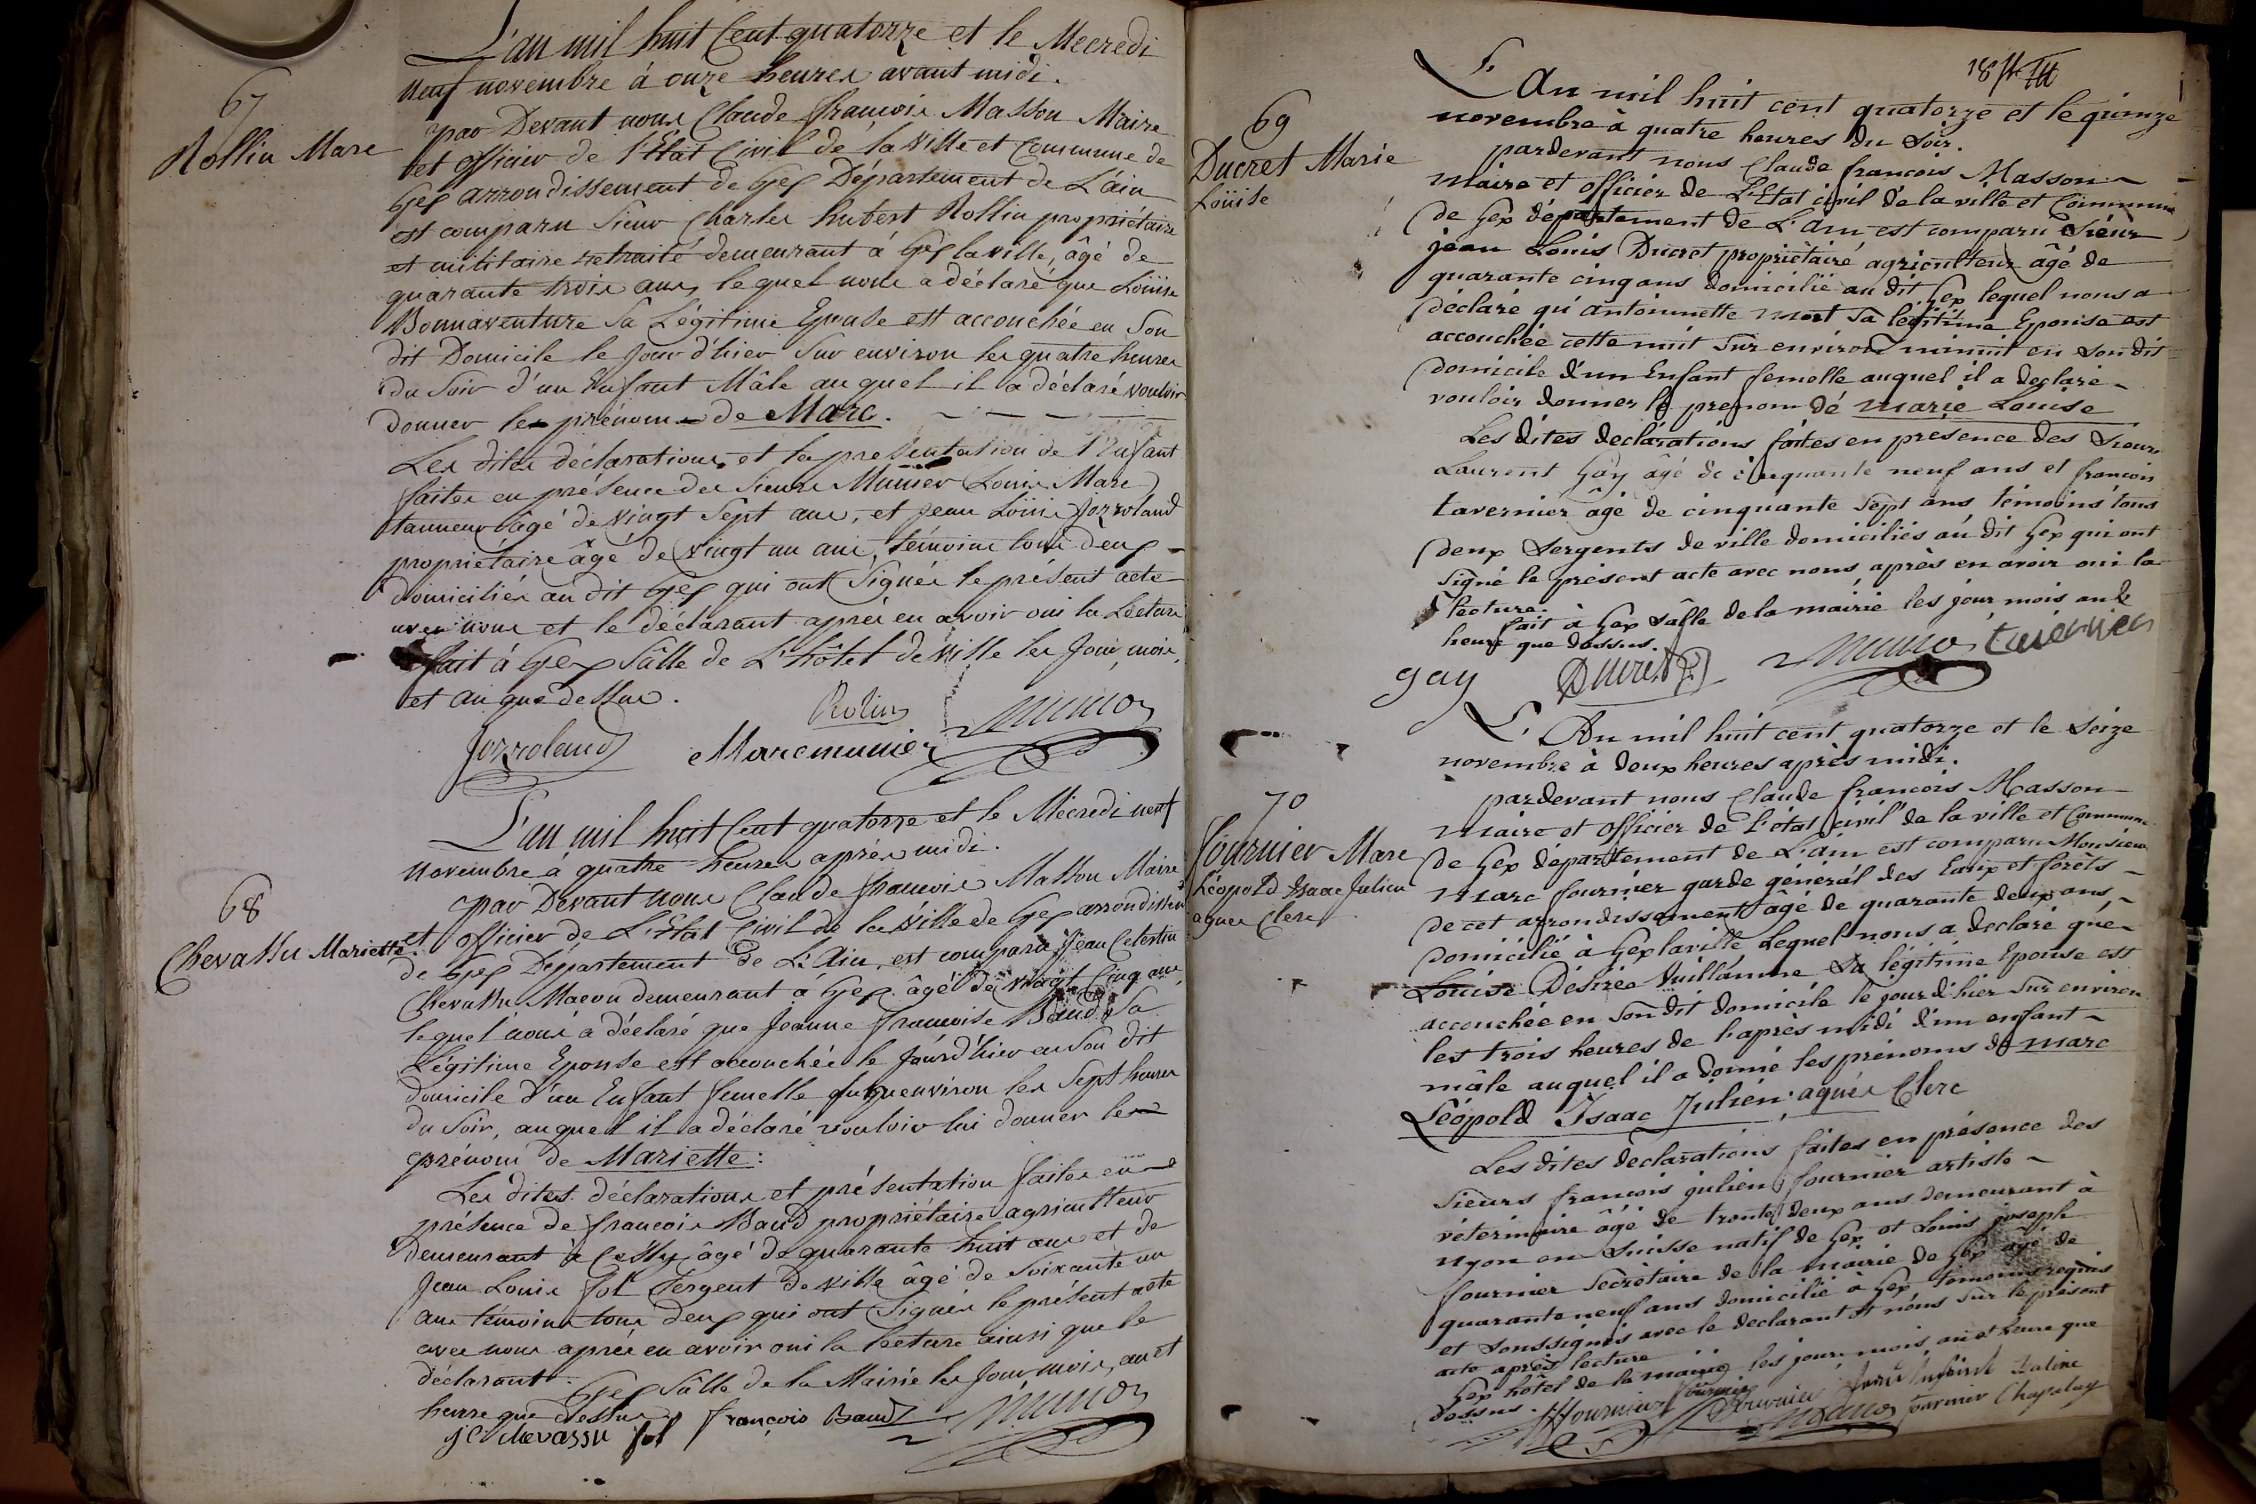 L'an mil huit Cent quatorze et le Mecredi
neuf novembre à onze heures avant midi.
67
Rollin Marc
par Devant nous Claude françois Masson Maire
et officier de l'Etat Civil de la Ville et Commune de
Gex arrondissement de Gex Département de L'ain
est comparu Sieur Charles hubert Rollin propriétaire
et militaire retraité demeurant à Gex la ville, âgé de
quarante trois ans, lequel nous a déclaré que Loüise
Bonnaventure Sa Légitime Epouse est accouchée en Son
dit Domicile le Jour d'hier Sur environ les quatre heures
du Soir d'un Enfant Mâle auquel il a déclaré vouloir
donner les prénoms de Marc.
Les dites déclarations et la presentation de l'Enfant
faites en présence des Sieurs Munier Louis Marc
tanneur âgé de vingt Sept ans, et Jean Loüis Jozroland
propriétaire âgé de vingt un ans, témoins tous deux
domiciliés au dit Gex qui ont Signés le présent acte
avec nous et le déclarant après en avoir oui la Lecture
fait à Gex Sâlle de L'hôtel de Ville les Jour, mois,
et an que dessus.
Rolin
Jozroland Marc munier
L'an mil huit Cent quatorze et le Mécredi neuf
novembre à quatre heures après midi.
68
Chevassu Mariette
par Devant nous Claude françois Masson Maire
et officier de L'Etat Civil de la Ville de Gex arrondissem
de Gex Département de L'Ain, est comparu Jean Celestin
Chevassu Maçon demeurant à Gex âgé de vingt Cinq ans,
lequel nous a déclaré que Jeanne françoise Baud Sa
Légitime Epouse est accouchée le Jourd'hier en Son dit
domicile d'un Enfant femelle environ les Sept heures
du Soir, auquel il a déclaré vouloir lui donner les
prénom de Mariette:
Les dites déclarations et présentation faites en
présence de françois Baud propriétaire agriculteur
demeurant à Cessy âgé de quarante huit ans et de
Jean Louis fol Sergent de ville âgé de Soixante un
ans témoins tous deux qui ont Signés le présent acte
avec nous après en avoir oui la lecture ainsi que le
déclarant.
Gex Sâlle de la Mairie les Jour mois, an et
heure que dessus.
J C chevassu fol françois Baud
L'An mil huit cent quatorze et le quinze
novembre à quatre heures du Soir.
69
Ducret Marie
Loüise
pardevant nous Claude francois Masson
Maire et officier de L'Etat civil de la ville et Commune
de Gex département de L'ain est comparu Sieur
jean Louis Ducret propriétaire agriculteur âgé de
quarante cinq ans domicilié au dit Gex lequel nous a
déclaré qu'antoinnette Sa légitime Epouise est
accouchée cette nuit Sur environ minuit en Son dit
domicile d'un Enfant femelle auquel il a déclaré
vouloir donner le prenom dé Marie Louise
Les dites declarations faites en presence des Sieurs
Laurent Gay âgé de cinquante neuf ans et francois
tavernier âgé de cinquante Sept ans témoins tous
deux Sergents de ville domiciliés au dit Gex qui ont
Signé le présent acte avec nous après en avoir oui la
lecture.
fait à Gex Sâlle de la mairie les jour mois an &
heure que dessus.
gay Ducret tavernier
L'An mil huit cent quatorze et le Seize
novembre à deux heures après midi.
70
fournier Marc
Léopold Isaac Julien
agnès Clerc
pardevant nous Claude francois Masson
Maire et officier de L'état civil de la ville et Commune
de Gex département de L'ain est comparu Monsieur
Marc fournier garde général des Eaux et forêts
de cet arrondissement âgé de quarante deux ans,
domicilié à Gex la ville Lequel nous a declaré que
Louise Désirée Vuillaume Sa légitime Epouse est
accouchée en Son dit domicile le jour d'hier Sur environ
les trois heures de l'après midi d'un enfant
mâle auquel il a donné les prénoms de Marc
Léopold Isaac Julien agnès Clerc
Les dites déclarations faites en présence des
Sieurs francois julien fournier artiste
véterinaire âgé de trente deux ans demeurant à
nyon en Suisse natif de Gex et Louis joseph
fournier Secrétaire de la mairie de Gex âgé de
quarante neuf ans domicilié à Gex témoins requis
et Soussignés avec le declarant et nous Sur le présent
acte après lecture
Gex hôtel de la mairie les jour mois, an et heure que
dessus.
fournier